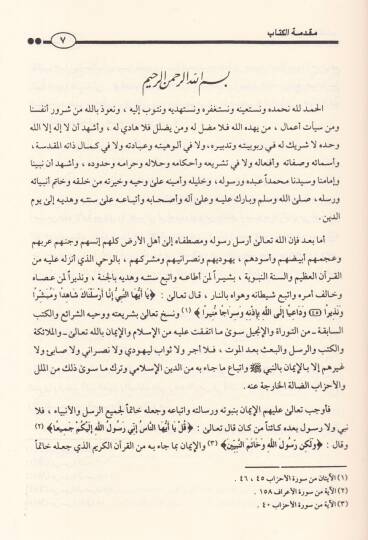 مقدمة الكتاب
٧
بسم الله الرحمن الرحيم
الحمد لله نحمده ونستعينه ونستغفره ونستهديه ونتوب إليه ، ونعوذ بالله من شرور أنفسنا
ومن سيأت أعمال ، من يهده الله فلا مضل له ومن يضلل فلا هادي له ، وأشهد أن لا إله إلا الله
وحده لا شريك له في ربوبيته وتدبيره، ولا في ألوهيته وعبادته ولا في كمال ذاته المقدسة،
وأسمائه وصفاته وأفعاله ولا في تشريعه وأحكامه وحلاله وحرامه وحدوده ، وأشهد أن نبينا
وإمامنا وسيدنا محمداً عبده ورسوله، وخليله وأمينه على وحيه وخيرته من خلقه وخاتم أنبيائه
ورسله، صلى الله وسلم وبارك عليه وعلى آله وأصحابه وأتباعه على سنته وهديه إلى يوم
الدين .
أما بعد فإن الله تعالى أرسل رسوله ومصطفاه إلى أهل الأرض كلهم إنسهم وجنهم عربهم
وعجمهم أبيضهم وأسودهم ، يهوديهم ونصرانيهم ومشركهم ، بالوحي الذي أنزله عليه من
القرآن العظيم والسنة النبوية ، بشيراً لمن أطاعه واتبع سنته وهديه بالجنة ، ونذيراً لمن عصاه
وخالف أمره واتبع شيطانه وهواه بالنار ، قال تعالى : ﴿يَا أَيُّهَا النَّبِيُّ إِنَّا أَرْسَلْنَاكَ شَاهِدًا وَمُبَشِّرًا
وَنَذِيرًا (٤٥) وَدَاعِيًا إِلَى اللَّهِ بِإِذْنِهِ وَسِرَاجًا مُّنِيرًا﴾ (١) ونسخ تعالى بشريعته ووحيه الشرائع والكتب
السابقة - من التوراة والإنجيل سوى ما اتفقت عليه من الإسلام والإيمان بالله تعالى - والملائكة
والكتب والرسل والبعث بعد الموت ، فلا أجر ولا ثواب ليهودي ولا نصراني ولا صابئ ولا
غيرهم إلا بالإيمان بالنبي ﷺ واتباع ما جاء به من الدين الإسلامي وترك ما سوى ذلك من الملل
والأحزاب الضالة الخارجة عنه.
فأوجب تعالى عليهم الإيمان بنبوته ورسالته واتباعه وجعله خاتماً لجميع الرسل والأنبياء ، فلا
نبي ولا رسول بعده كائناً من كان قال تعالى : ﴿قُلْ يَا أَيُّهَا النَّاسُ إِنِّي رَسُولُ اللَّهِ إِلَيْكُمْ جَمِيعًا﴾ (٢)
وقال : ﴿وَلَكِن رَّسُولَ اللَّهِ وَخَاتَمَ النَّبِيِّينَ﴾ (٣) والإيمان بما جاء به من القرآن الكريم الذي جعله خاتماً
(١) الآيتان من سورة الأحزاب ٤٥ ، ٤٦ .
(٢) الآية من سورة الأعراف ١٥٨ .
(٣) الآية من سورة الأحزاب ٤٠ .